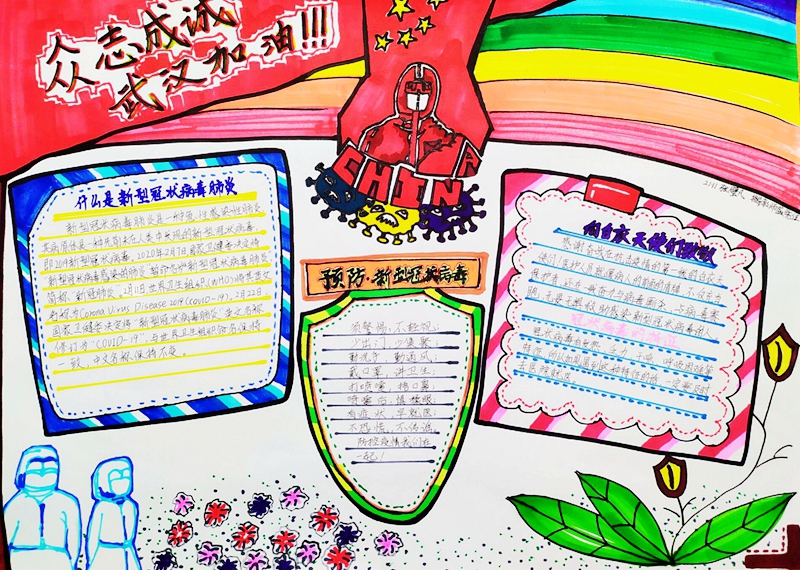 众志成诚
武汉加油!!!
CHINA
什么是新型冠状病毒肺炎
新型冠状病毒肺炎是一种急性感染性肺炎
其病原体是一种先前未在人类中发现的新型冠状病毒
即2019新型冠状病毒。2020年2月7日国家卫健委决定将
新型冠状病毒感染的肺炎暂命名为新型冠状病毒肺炎
简称"新冠肺炎"。2月11日世界卫生组织(WHO)将其英文
名称为Corona Virus Disease 2019(COVID-19)。2月22日
国家卫健委决定将"新型冠状病毒肺炎"英文名称
修订为"COVID-19"与世界卫生组织命名保持
一致,中文名称保持不变。
预防·新型冠状病毒
须警惕,不轻视
少出门,少集聚
勤洗手,勤通风
戴口罩,讲卫生
打喷嚏,捂口鼻
喷嚏后,慎揉眼
有症状,早就医
不恐慌,不传谣
防控疫情我们在
一起!
向白衣天使们致敬
感谢奋战在抗击疫情的第一线的白衣天
冠状病毒的特征
去医院就诊